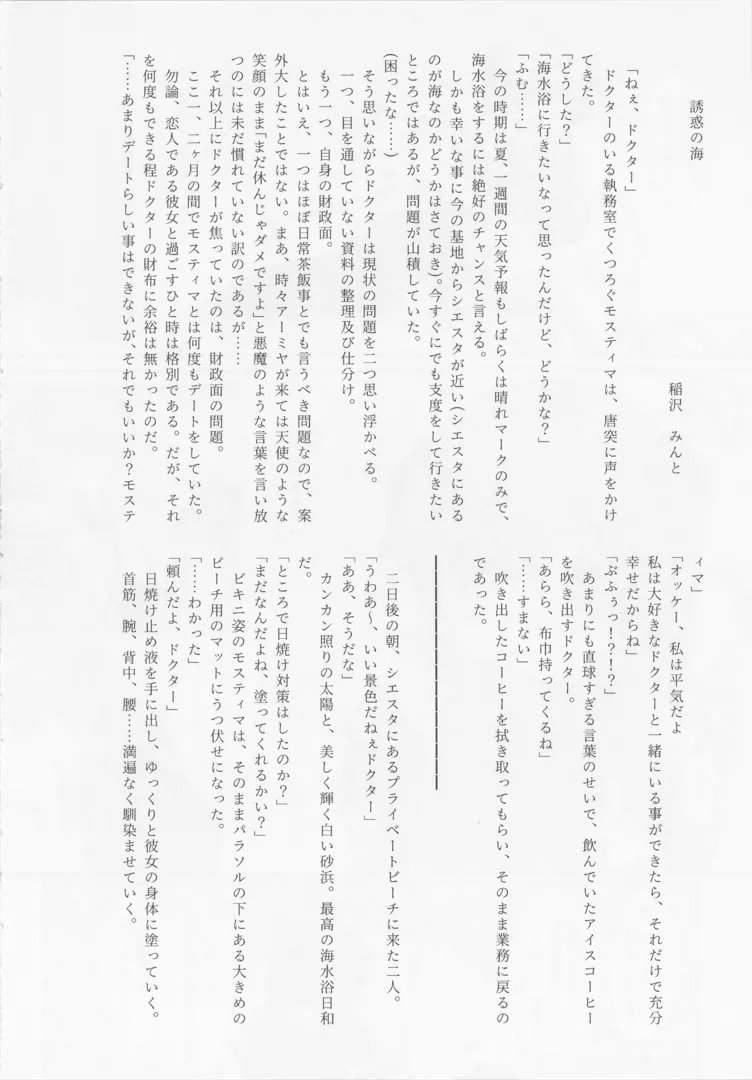 誘惑の海
稲沢　みんと
「ねぇ、ドクター」
　ドクターのいる執務室でくつろぐモスティマは、唐突に声をかけ
てきた。
「どうした？」
「海水浴に行きたいなって思ったんだけど、どうかな？」
「ふむ……」
　今の時期は夏、一週間の天気予報もしばらくは晴れマークのみで、
海水浴をするには絶好のチャンスと言える。
　しかも幸いな事に今の基地からシエスタが近い(シエスタにある
のが海なのかどうかはさておき)。今すぐにでも支度をして行きたい
ところではあるが、問題が山積していた。
(困ったな……)
　そう思いながらドクターは現状の問題を二つ思い浮かべる。
　一つ、目を通していない資料の整理及び仕分け。
　もう一つ、自身の財政面。
　とはいえ、一つはほぼ日常茶飯事とでも言うべき問題なので、案
外大したことではない。まあ、時々アーミヤが来ては天使のような
笑顔のまま「まだ休んじゃダメですよ」と悪魔のような言葉を言い放
つのには未だ慣れていない訳のであるが……
　それ以上にドクターが焦っていたのは、財政面の問題。
　ここ一、二ヶ月の間でモスティマとは何度もデートをしていた。
　勿論、恋人である彼女と過ごすひと時は格別である。だが、それ
を何度もできる程ドクターの財布に余裕は無かったのだ。
「……あまりデートらしい事はできないが、それでもいいか？モステ
ィマ」
「オッケー、私は平気だよ
私は大好きなドクターと一緒にいる事ができたら、それだけで充分
幸せだからね」
「ぶふぅっ！？！？」
　あまりにも直球すぎる言葉のせいで、飲んでいたアイスコーヒー
を吹き出すドクター。
「あらら、布巾持ってくるね」
「……すまない」
　吹き出したコーヒーを拭き取ってもらい、そのまま業務に戻るの
であった。
　二日後の朝、シエスタにあるプライベートビーチに来た二人。
「うわあ〜、いい景色だねぇドクター」
「ああ、そうだな」
　カンカン照りの太陽と、美しく輝く白い砂浜。最高の海水浴日和
だ。
「ところで日焼け対策はしたのか？」
「まだなんだよね、塗ってくれるかい？」
　ビキニ姿のモスティマは、そのままパラソルの下にある大きめの
ビーチ用のマットにうつ伏せになった。
「……わかった」
「頼んだよ、ドクター」
　日焼け止め液を手に出し、ゆっくりと彼女の身体に塗っていく。
　首筋、腕、背中、腰……満遍なく馴染ませていく。